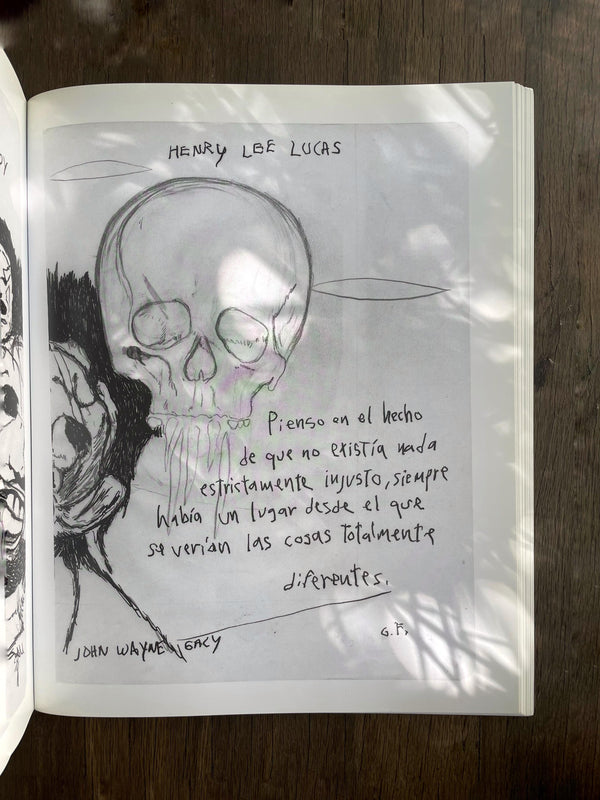 HENRY LEE LUCAS
Pienso en el hecho
de que no existía nada
estristamente injusto, siempre
había un lugar desde el que
se verían las cosas totalmente
diferentes.
JOHN WAYNE GACY
G.F.